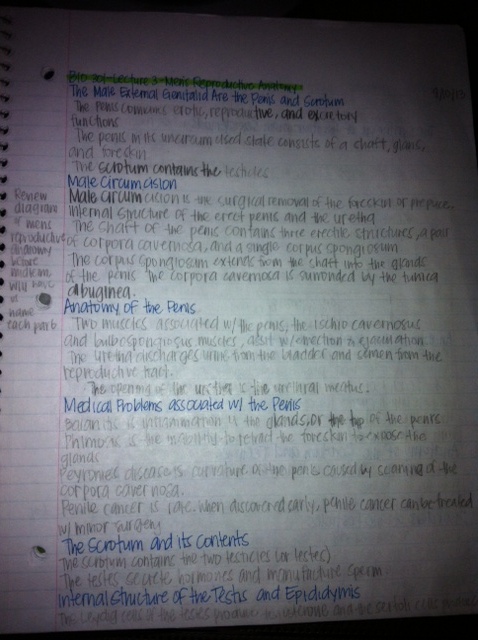 BIO 301-Lecture 3-Men's Reproductive Anatomy
The Male External Genitalia Are the Penis and Scrotum
The Penis combines erotic, reproductive, and excretory
functions
The penis in its uncircumcised state consists of a shaft, glans,
and foreskin
The scrotum contains the testicles
Male Circumcision
Male circumcision is the surgical removal of the foreskin or prepuce.
Internal structure of the erect penis and the urethra
The shaft of the penis contains three erectile structures, a pair
of corpora cavernosa, and a single corpus spongiosum
The corpus spongiosum extends from the shaft into the glands
of the penis The corpora cavernosa is surrounded by the tunica
albuginea.
Review
diagram
of mens
reproductive
anatomy
before
midterm,
will have
to
name
each part
Anatomy of the Penis
Two muscles associated w/ the penis, the ischio cavernosus
and bulbospongiosus muscles, assist w/ erection & ejaculation
The urethra discharges urine from the bladder and semen from the
reproductive tract.
The opening of the urethra is the urethral meatus.
Medical Problems associated w/ the Penis
Balanitis is inflammation of the glands, or the top of the penis
Phimosis is the inability to retract the foreskin to expose the
glands
Peyronies disease is curvature of the penis caused by scarring of the
corpora cavernosa.
Penile cancer is rare. When discovered early, penile cancer can be treated
w/ minor surgery
The Scrotum and its Contents
The scrotum contains the two testicles (or testes)
The testes secrete hormones and manufacture sperm
Internal Structure of the Testis and Epididymis
The Leydig cells of the testes produce and the sertoli cells